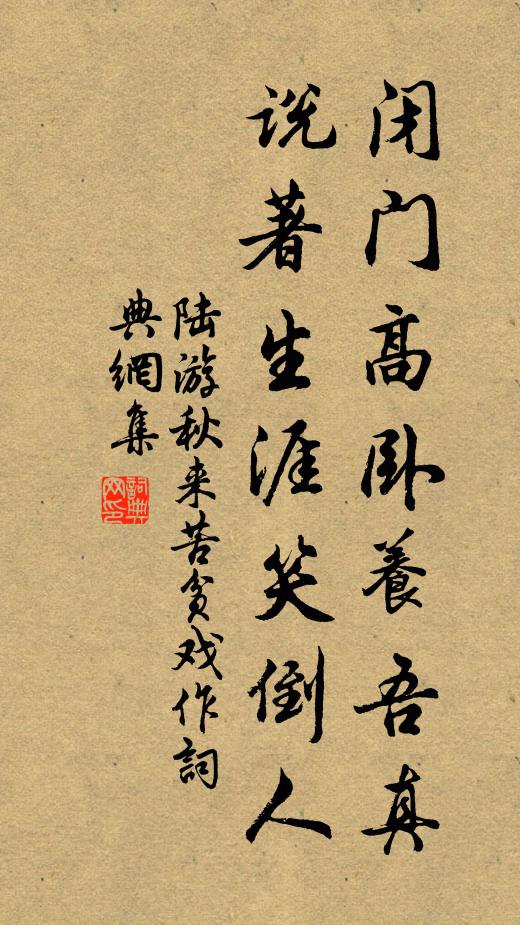 闭门高卧養吾真
说著生涯笑倒人
陆游秋来苦贫戏作詞
典網集
詞典
网印